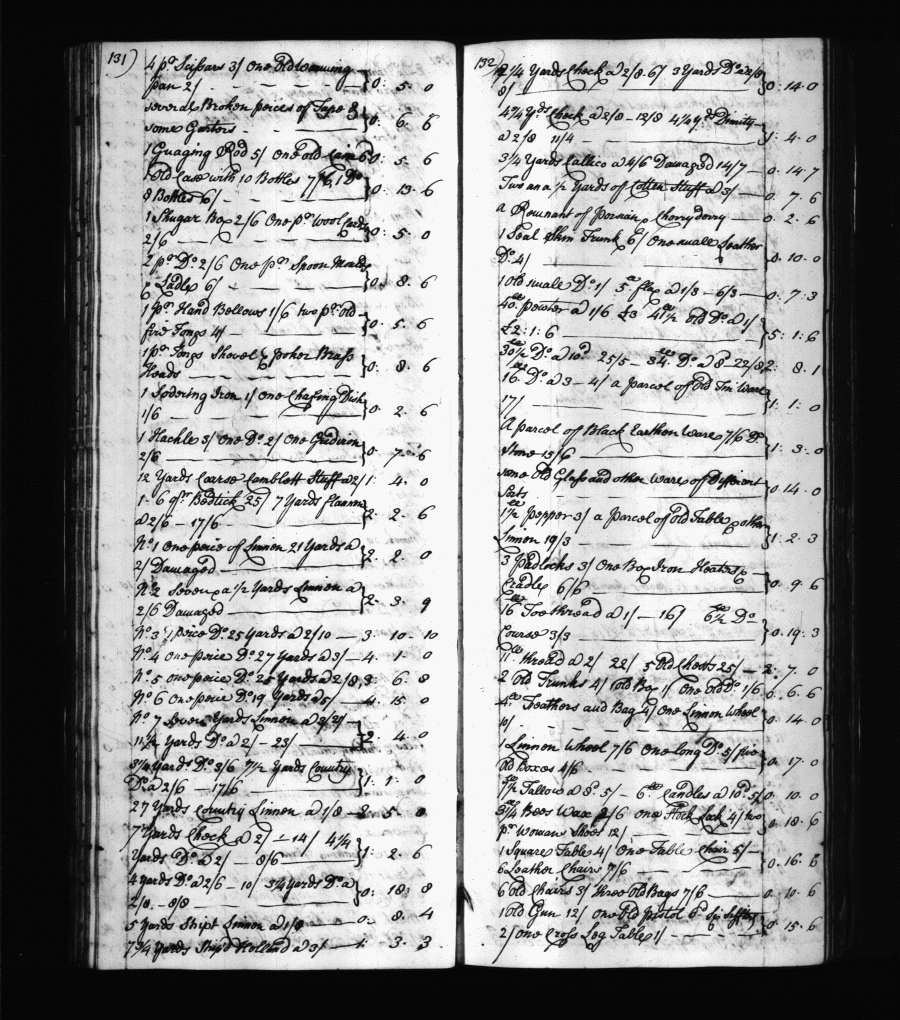 131)
4 pr. Scissars 3/ One Old Warming
Pan 2/ — — — — 0: 5. 0
several Broken peices of Tape &
some Garters - - — 0. 6. 6
1 Guaging Rod 5/ One old 0. 5. 6
1 Old Case with 10 Bottles 7/6, 1 Do.
8 Bottles 6/ — — — 0. 13. 6
1 Shugar Box 2/6 One pr. Wool Cards
2/6 — — — — 0. 5. 0
2 pr. Do. 2/6 One pr. Spoon Molds
& Ladle 6/ — — — 0. 8. 6
1 pr. Hand Bellows 1/6 two pr. old
fire Tongs 4/ — — 0. 5. 6
1 pr. Tongs Shovel & poker Brass
Heads — — — 0. 8. 6
1 Sodering Iron 1/ One Chafing Dish
1/6 — — — 0. 2. 6
1 Hachle 3/ One Do. 2/ One Gridiron
2/6 — — — 0. 7. 6
12 Yards Coarse Camblett Stuff a 2/ 1. 4. 0
1. 6 qr. Bedtick 25/ 7 Yards flannen
a 2/6 — 17/6 — — 2. 2. 6
No. 1 One peice of Linnen 21 Yards a
2/ Damaged — — 2. 2. 0
No. 2 Seven a 1/2 Yards Linnen a
2/6 Damaged — — 2. 3. 9
No. 3 1 peice Do. 25 Yards a 2/10 — 3. 10. 10
No. 4 One peice Do. 27 Yards a 3/ — 4. 1. 0
No. 5 one peice Do. 25 Yards a 2/8, 3. 6. 8
No. 6 One peice Do. 19 Yards a 5/ — 4. 15. 0
No. 7 Seven Yards Linnen a 3/ 21/
11 1/2 Yards Do. a 2/ — 23/ — 2. 4. 0
3/4 Yard Do. 3/6 7 1/2 Yards Country
Do. a 2/6 — 17/6 — 1. 1. 0
27 Yards Country Linnen a 1/8 — 2. 5. 0
7 Yards Check a 2/ — 14/ 4 1/4
Yards Do. a 2/ — 8/6 — 1. 2. 6
4 Yards Do. a 2/6 — 10/ 3 1/4 Yards Do. a
2/8. — 8/8 — — 0. 18. 8
5 Yards Stript Linnen a 1/8 — 0. 8. 4
7 3/4 Yards Strip'd Holland a 3/ — 1. 3. 3
132)
2 1/4 Yards Check a 2/8. 6/ 3 Yards Do. a 2/8
8/ — — — 0. 14. 0
4 3/4 Yds. Check a 2/8 — 12/8 4 1/4 Yds. Dimity
a 2/8 11/4 — — 1. 4. 0
3 1/4 Yards Callico a 4/6 Damaged 14/7 — 0. 14. 7
Two an a 1/2 Yards of Cotten Stuff a 3/ — 0. 7. 6
a Remnant of Persian & Cherryderry — 0. 2. 6
1 Seal Skin Trunk 6/ One small Leather
Do. 4/ — — — 0. 10. 0
1 Old smale Do. 1/ 5 lb flax a 1/3 — 6/3 — 0. 7. 3
40 lb. Powter a 1/6 £3 41 lb 1/2 Old Do. a 1/
£2: 1: 6 — 5. 1. 6
30 1/2 lb Do. a 10d. 25/5 — 34 lb. Do. a 8d — 22/8 2. 8. 1
16 lb. Do. a 3 — 4/ a parcel of Old Tin Ware
17/ — — 1. 1. 0
A parcel of Black Earthen Ware 7/6 Do.
Stone 15/6 — — 1. 3. 0
some Old Glass and other Wares of Different
Sorts — — 0. 14. 0
1 1/2 lb Pepper 3/ a Parcel of Old Table & other
Linnen 19/3 — — 1. 2. 3
3 Padlocks 3/ One Box Iron Heaters &
Cradle 6/6 — — 0. 9. 6
16 lb Toe thread a 1/ — 16/ 6 1/2 lb Do.
Course 3/3 — — 0. 19. 3
11 lb thread a 2/ 22/ 5 Old Chests 25/ — 2. 7. 0
2 Old Trunks 4/ 1 Old Box 1/ One Old Do. 1/6 0. 6. 6
4 lb. Feathers and Bag 4/ One Linnen Wheel
10/ - — — 0. 14. 0
1 Linnen Wheel 7/6 One long Do. 5/ five
Old Boxes 4/6 — — 0. 17. 0
7 1/2 lb Tallow a 8d. 5/ — 6 lb Candles a 10d. 5/ 0. 10. 0
3 1/4 lb Bees Wax /6 one Stock Lock 4/ two
pr. Woman Shoes 12/ — 0. 18. 6
1 Square Table 4/ One Table Chair 5/ —
6 Leather Chairs 7/6 — — 0. 16. 6
6 Old Chairs 3/ three Old Bags 7/6 — 0. 10. 6
1 Old Gun 12/ one Old Pistol 6d.
2/ one Cross Leg Table 1/ — — 0. 15. 6